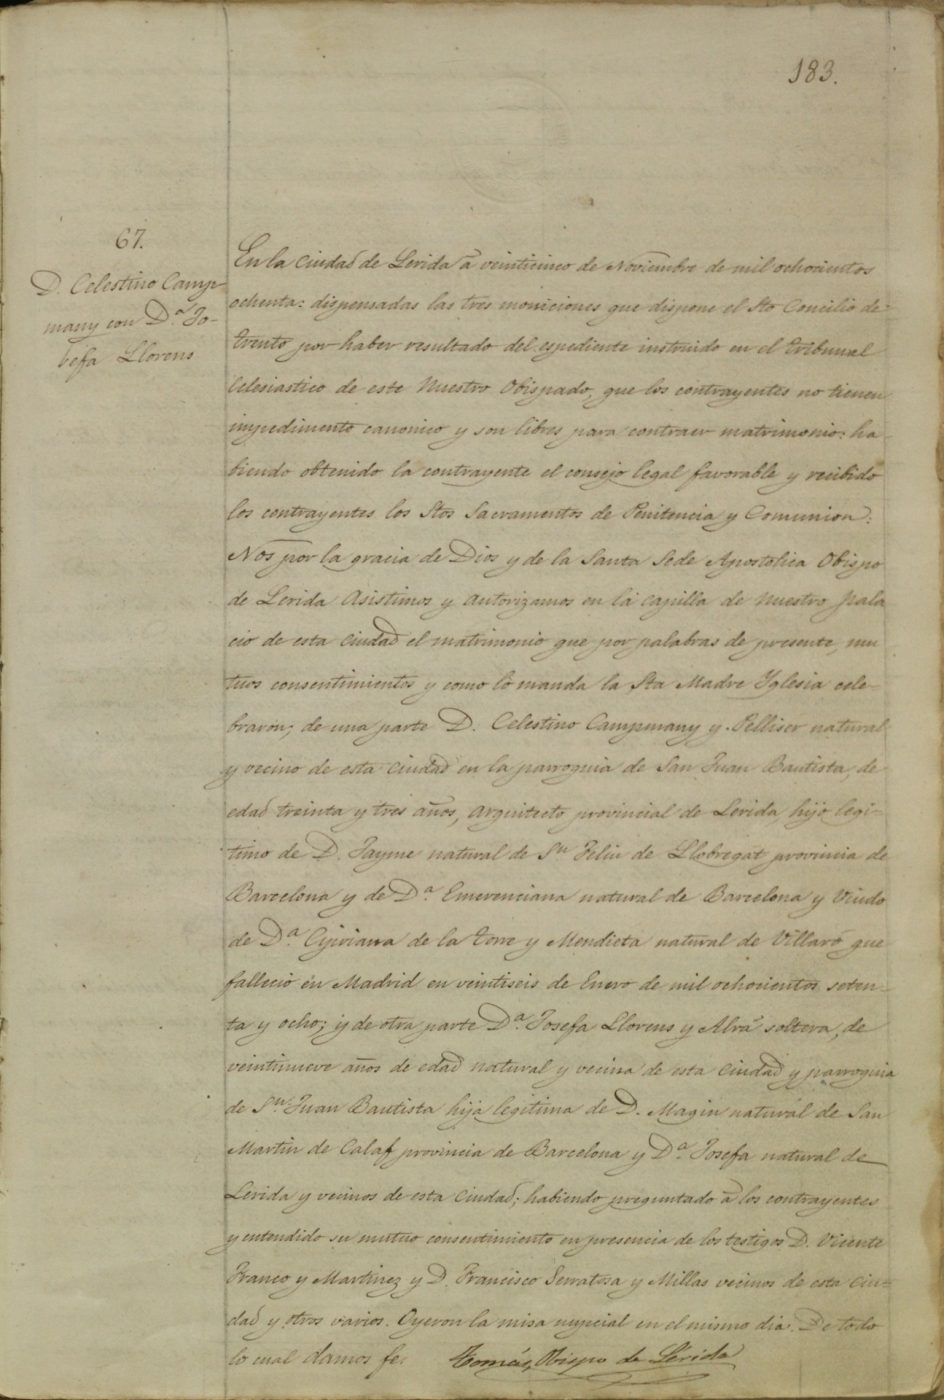 183.
67.
D. Celestino Camp-
many con D.ª Jo-
sefa Llorens
En la Ciudad de Lerida á veinticinco de Noviembre de mil ochocientos
ochenta: dispensadas las tres moniciones que dispone el Sto Concilio de
trento por haber resultado del espediente instruido en el tribunal
Eclesiastico de este Nuestro Obispado, que los contrayentes no tienen
impedimento canonico y son libres para contraer matrimonio: ha-
biendo obtenido la contrayente el consejo legal favorable y recibido
los contrayentes los Stos Sacramentos de Penitencia y Comunion:
Nos por la gracia de Dios y de la Santa Sede Apostolica Obispo
de Lerida Asistimos y autorizamos en la capilla de nuestro pala
cio de esta Ciudad el matrimonio que por palabras de presente, mu
tuos consentimientos y como lo manda la Sta Madre Yglesia cele-
braron; de una parte D. Celestino Campmany y Pelliser natural
y vecino de esta Ciudad en la parroquia de San Juan Bautista, de
edad treinta y tres años, arquitecto provincial de Lerida, hijo legi-
timo de D. Jayme natural de Sn Feliu de Llobregat provincia de
Barcelona y de D.ª Emerenciana natural de Barcelona y Viudo
de D.ª de la torre y Mendieta natural de Villaró que
falleció en Madrid en veintiseis de Enero de mil ochocientos seten-
ta y ocho; y de otra parte D.ª Josefa Llorens y soltera, de
veintinueve años de edad natural y vecina de esta Ciudad y parroquia
de Sn Juan Bautista hija legitima de D. Magin natural de San
Martin de Calaf provincia de Barcelona y D.ª Josefa natural de
Lerida y vecinos de esta Ciudad; habiendo preguntado á los contrayentes
y entendido su mutuo consentimiento en presencia de los testigos D. Vicente
Franco y Martinez y D. Francisco Serratosa y Millas vecinos de esta Ciu-
dad y otros varios. Oyeron la misa nupcial en el mismo dia. De todo
lo cual damos fe. Tomás, Obispo de Lérida